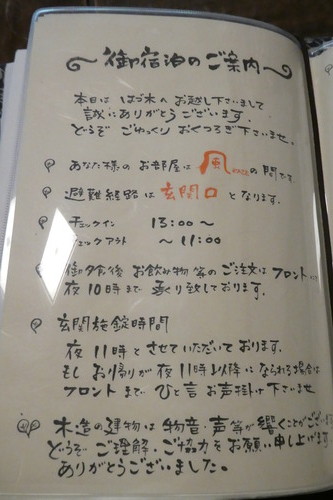 〜御宿泊のご案内〜
本日は はづ木へ お越し下さいまして
誠にありがとうございます。
どうぞ ごゆっくり おくつろぎ下さいませ。
あなた様のお部屋は 風 の間です
避難経路は 玄関口 となります。
チェックイン 13:00〜
チェックアウト 〜11:00
御夕食後 お飲み物等のご注文は フロント
夜10時まで 承り致しております。
玄関施錠時間
夜11時とさせていただいております。
もし お帰りが 夜11時以降になられる場合は
フロントまで ひと言 お声掛け下さいませ
木造の建物は 物音・声等が響くことがござい
どうぞ ご理解・ご協力をお願い申し上げます
ありがとうございました。